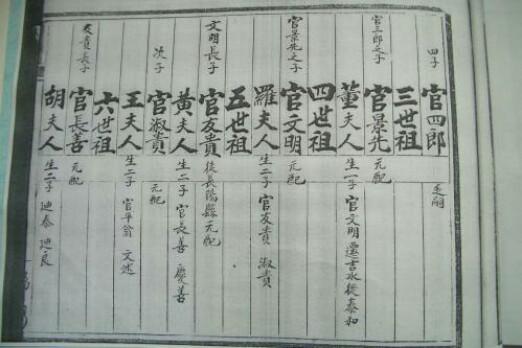 四子 官四郎 乏嗣
三世祖
官三郎之子 官景先 元配
董夫人 生一子 官文明 遷吉水從泰和
四世祖
官景先之子 官文明 元配
羅夫人 生二子 官友貴 淑貴
五世祖
文明長子 官友貴 徙長陽縣 元配
黄夫人 生二子 官長善 慶善
次子 官淑貴 元配
王夫人 生二子 官平翁 文述
六世祖
友貴長子 官長善 元配
胡夫人 生二子 迪泰 迪良